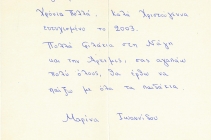 Χρόνια Πολλά. Καλά Χριστούγεννα
ευτυχισμένο το 2003.
Πολλά φιλάκια στη Νάγια
και την Άρτεμις, σας αγαπάω
πολύ όλους, θα έρθω να
παίξω με όλα τα παιδάκια.
Μαρίνα